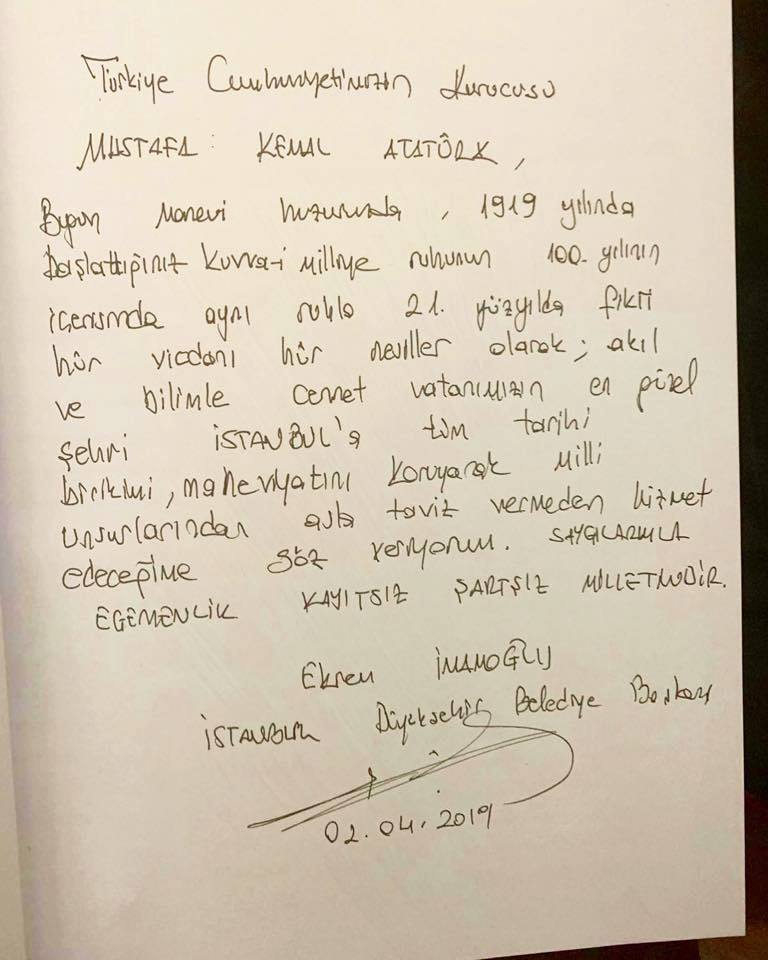 Türkiye Cumhuriyetimizin Kurucusu
MUSTAFA KEMAL ATATÜRK,
Bugün Manevi huzurunda, 1919 yılında
başlattığınız Kuvva-i Milliye ruhunun 100. yılının
içerisinde aynı ruhla 21. yüzyılda fikri
hür vicdanı hür nesiller olarak; akıl
ve bilimle cennet vatanımızın en güzel
şehri İSTANBUL'a tüm tarihi
birikimi, maneviyatını koruyarak Milli
unsurlarından asla taviz vermeden hizmet
edeceğime söz veriyorum. SAYGILARIMLA
EGEMENLİK KAYITSIZ ŞARTSIZ MİLLETİNDİR.
Ekrem İMAMOĞLU
İSTANBUL Büyükşehir Belediye Başkanı
02.04.2019